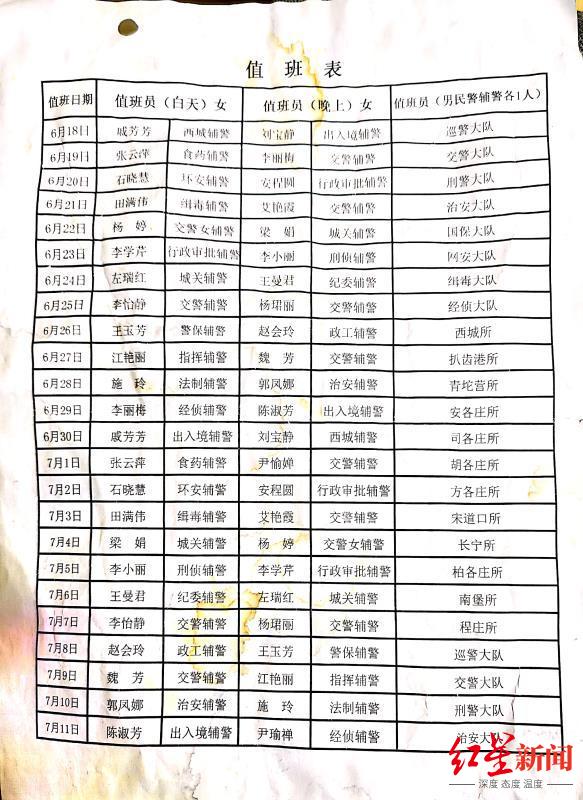 值班表
值班日期 值班员（白天）女 值班员（晚上）女 值班员（男民警辅警各1人）
6月18日 戚芳芳 西城辅警 刘宝静 出入境辅警 巡警大队
6月19日 张云萍 食药辅警 李丽梅 交警辅警 交警大队
6月20日 石晓慧 环安辅警 安程圆 行政审批辅警 刑警大队
6月21日 田满伟 缉毒辅警 艾艳霞 交警辅警 治安大队
6月22日 杨婷 交警女辅警 梁娟 城关辅警 国保大队
6月23日 李学芹 行政审批辅警 李小丽 刑侦辅警 网安大队
6月24日 左瑞红 城关辅警 王曼君 纪委辅警 缉毒大队
6月25日 李怡静 交警辅警 杨珺丽 交警辅警 经侦大队
6月26日 王玉芳 警保辅警 赵会玲 政工辅警 西城所
6月27日 江艳丽 指挥辅警 魏芳 交警辅警 扒齿港所
6月28日 施玲 法制辅警 郭凤娜 治安辅警 青坨营所
6月29日 李丽梅 经侦辅警 陈淑芳 出入境辅警 安各庄所
6月30日 戚芳芳 出入境辅警 刘宝静 西城辅警 司各庄所
7月1日 张云萍 食药辅警 尹愉婵 交警辅警 胡各庄所
7月2日 石晓慧 环安辅警 安程圆 行政审批辅警 方各庄所
7月3日 田满伟 缉毒辅警 艾艳霞 交警辅警 宋道口所
7月4日 梁娟 城关辅警 杨婷 交警女辅警 长宁所
7月5日 李小丽 刑侦辅警 李学芹 行政审批辅警 柏各庄所
7月6日 王曼君 纪委辅警 左瑞红 城关辅警 南堡所
7月7日 李怡静 交警辅警 杨珺丽 交警辅警 程庄所
7月8日 赵会玲 政工辅警 王玉芳 警保辅警 巡警大队
7月9日 魏芳 交警辅警 江艳丽 指挥辅警 交警大队
7月10日 郭凤娜 治安辅警 施玲 法制辅警 刑警大队
7月11日 陈淑芳 出入境辅警 尹瑜禅 经侦辅警 治安大队
红星新闻
深度 态度 温度